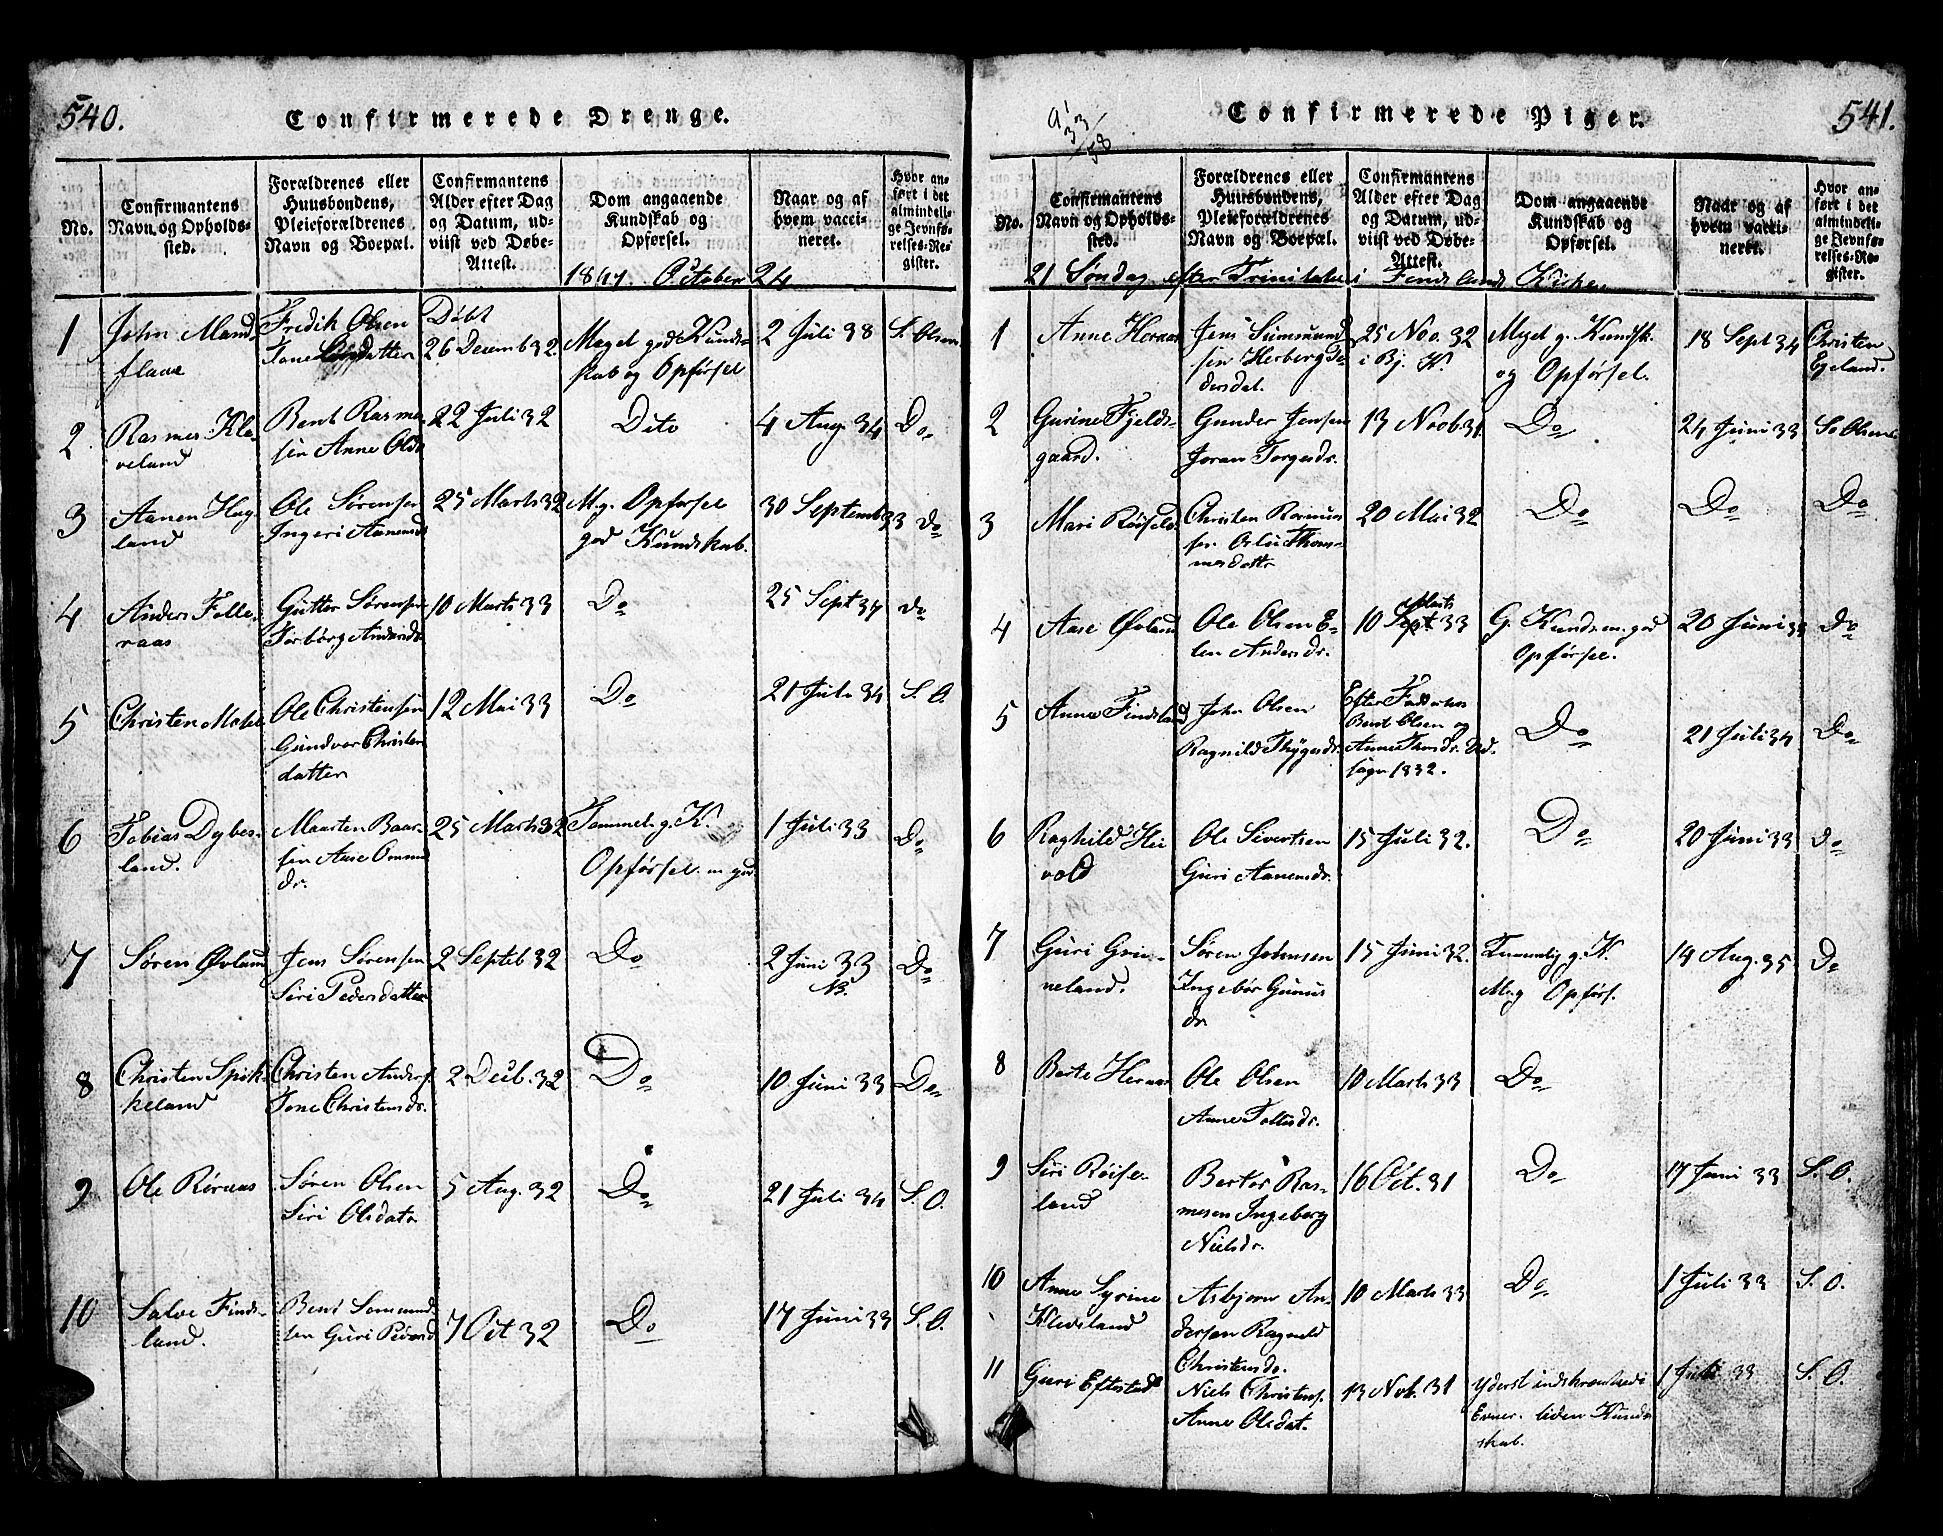 540.
Confirmerede Drenge.
No.
Confirmantens Navn og Opholdssted.
Forældrenes eller Huusbondens, Pleieforældrenes Navn og Boepæl.
Confirmantens Alder efter Dag og Datum, udviist ved Døbe-Attest.
Dom angaaende Kundskab og Opførsel.
Naar og af hvem vaccineret.
Hvor anført i det almindelige Jevnførelses-Register.
1847. October 24
1 John Mandflaae Fredik Olsen Tone datter Døbt 26 Decemb 32 Meget god Kundskab og Opførsel 2 Juli 38 S. Olsen
2 Rasmus Kleveland Bent Rasmussen Anne Olsdr 22 Juli 32 Dito 4 Aug. 34 Do
3 Aanen Hægland Ole Sørensen Ingeri Aanensdr 25 Marts 32 M.g. Opførsel god Kundskab. 30 Septemb 33 Do
4 Anders Folleraas Gutter Sørensen Torborg Andersdr 10 Marts 33 Do 25 Sept 34 Do
5 Christen Møhl Ole Christensen Gundvor Christendatter 12 Mai 33 Do 21 Juli 34 S. O.
6 Tobias Dybesland. Maarten Baarsen Aase Ommundr. 25 Marts 32 Temmel. g. K. Opførsel. m. god 1 Juli 33 Do
7 Søren Øvland Jens Sørensen Siri Pedersdatter 2 Septeb 32 Do 2 Juni 33 NB. Do
8 Christen Spikkeland Christen Anders. Tone Christensdr. 2 Decb. 32 Do 10 Juni 33 Do
9 Ole Røraas Søren Olsen Siri Olsdatr 5 Aug. 32 Do 21 Juli 34 S. O.
10 Salve Findsland. Bent Somundsen Guri Pedersd 7 Oct 32 Do 17 Juni 33 S. O.
541.
Confirmerede Piger.
33/58
No.
Confirmantens Navn og Opholdssted.
Forældrenes eller Huusbondens, Pleieforældrenes Navn og Boepæl.
Confirmantens Alder efter Dag og Datum, udviist ved Døbe-Attest.
Dom angaaende Kundskab og Opførsel.
Naar og af hvem vaccineret.
Hvor anført i det almindelige Jevnførelses-Register.
21 Søndag efter Trinitatis i Findslands Kirke
1 Anne Heraas Jens Summundsen Herborg dersdat. 25 Nov. 32 i Bj. K. Meget g. Kundsk. og Opførsel. 18 Sept 34 Christen Egeland.
2 Gurine Fjeldsgaard. Gunder Jensen Joran Torgersdr. 13 Novb. 31. Do 24 Juni 33 S. Olsen
3 Mari Røiseld Christen Rasmussen Thommesdattr 20 Mai 32 Do Do Do
4 Aase Øvland Ole Olsen Elen Andersdr. 10 Marts Sept. 33 G. Kunds. m. god Opførsel. 20 Juni 33 Do
5 Anne Findsland John Olsen Ragnild Thygesdr. Efter Faddernes Bent Olsen og Anne Thorsdr. Udsagn 1832. Do 21 Juli 34 Do
6 Raghild Heivold Ole Sivertsen Guri Aanensdr. 15 Juli 32. Do 20 Juni 33 Do
7 Guri Grinneland. Søren Johnsen Ingebor Gunusdr 15 Juni 32. Temmelig g. K. M.g Opførs. 14 Aug. 35 Do
8 Berte Heraas Ole Olsen Anne Tollesdr. 10 Marts 33 Do
9 Siri Røiseland Berthor Rasmesen Ingeborg Nielsdr. 16 Oct. 31 Do 17 Juni 33 S. O.
10 Anne Syrine Klevsland Asbjorn Andersen Ragnild Christensdr. 10 Marts 33 Do 1 Juli 33 S. O.
11 Guri Eftestad Niels Christens. Anne Olsdat. 13 Nob. 31 Yderst indskrænkede Evner. liden Kundskab. 1 Juli 33 S. O.